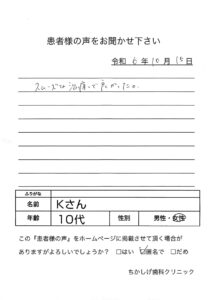 患者様の声をお聞かせ下さい
令和 6 年 10 月 15 日
スムーズな治療で良かったです。
ふりがな
名前 Kさん
年齢 10代 性別 男性・女性
この『患者様の声』をホームページに掲載させて頂く場合が
ありますがよろしいでしょうか? □はい ☑匿名で □だめ
ちかしげ歯科クリニック